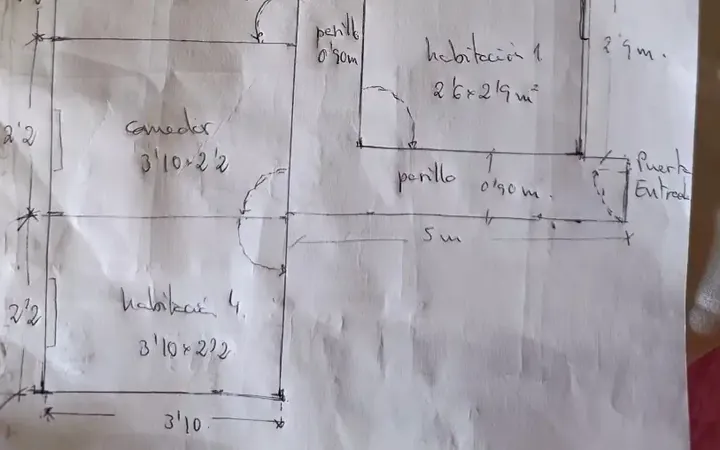 pasillo
0'90m
habitación 1
2'6 x 2'9 m²
2'9 m.
2'2
comedor
3'10 x 2'2
pasillo 0'90 m.
Puerta
Entrada
5 m
2'2
habitació 4.
3'10 x 2'2
3'10.